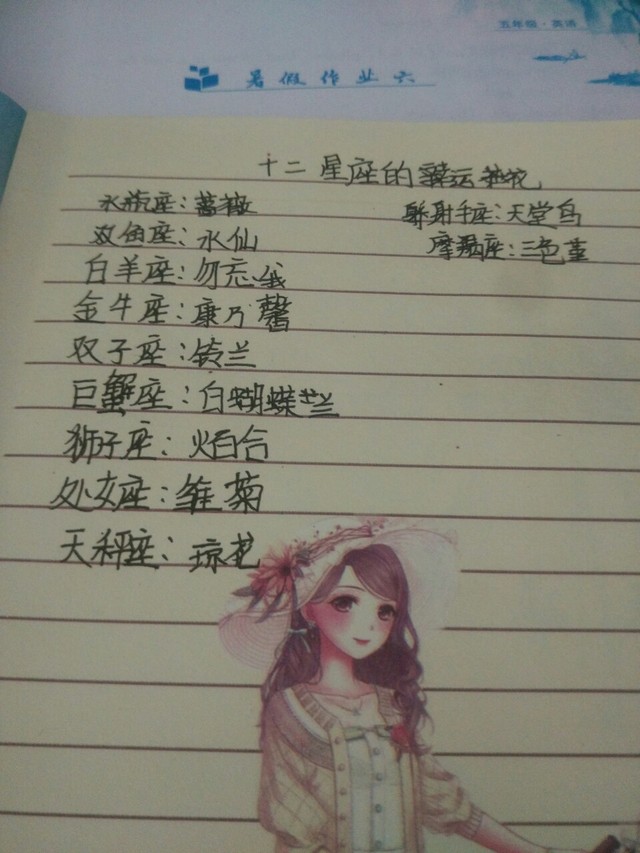 五年级·英语
暑假作业六
十二星座的幸运花
水瓶座：蔷薇
双鱼座：水仙
白羊座：勿忘我
金牛座：康乃馨
双子座：铃兰
巨蟹座：白蝴蝶兰
狮子座：火百合
处女座：雏菊
天秤座：琼花
射手座：天堂鸟
摩羯座：三色堇